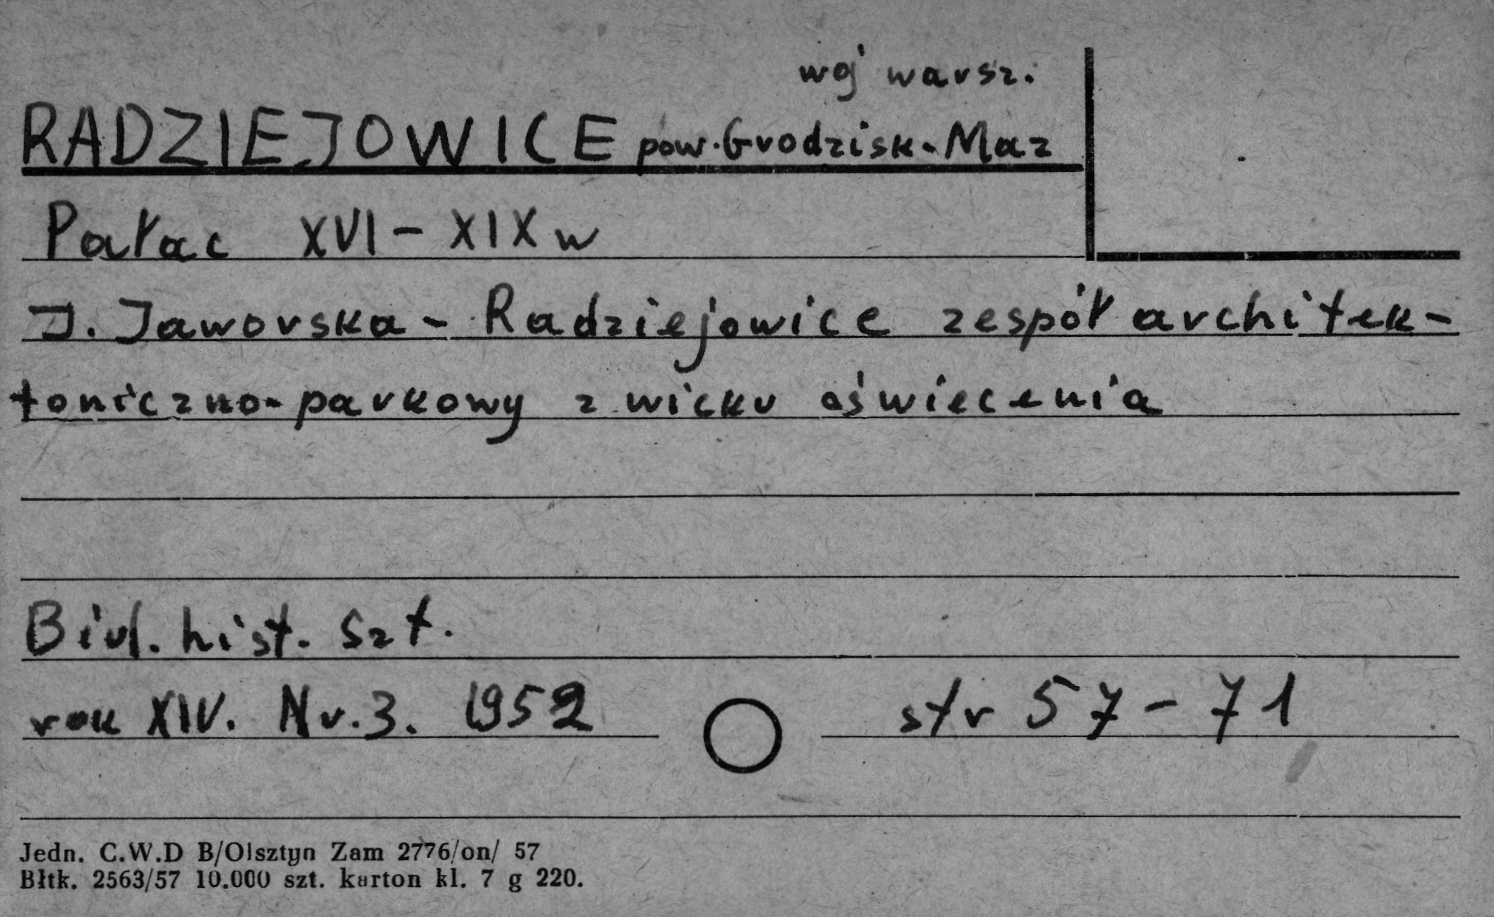 woj warsz.
RADZIEJOWICE pow. Grodzisk. Maz
Pałac XVI - XIX w
J. Jaworska - Radziejowice zespół architek-
toniczno-parkowy z wieku oświecenia
Biul. hist. Szt.
rok XIV. Nr. 3. 1952 str 57 - 71
Jedn. C.W.D B/Olsztyn Zam 2776/on/ 57
Błtk. 2563/57 10.000 szt. karton kl. 7 g 220.